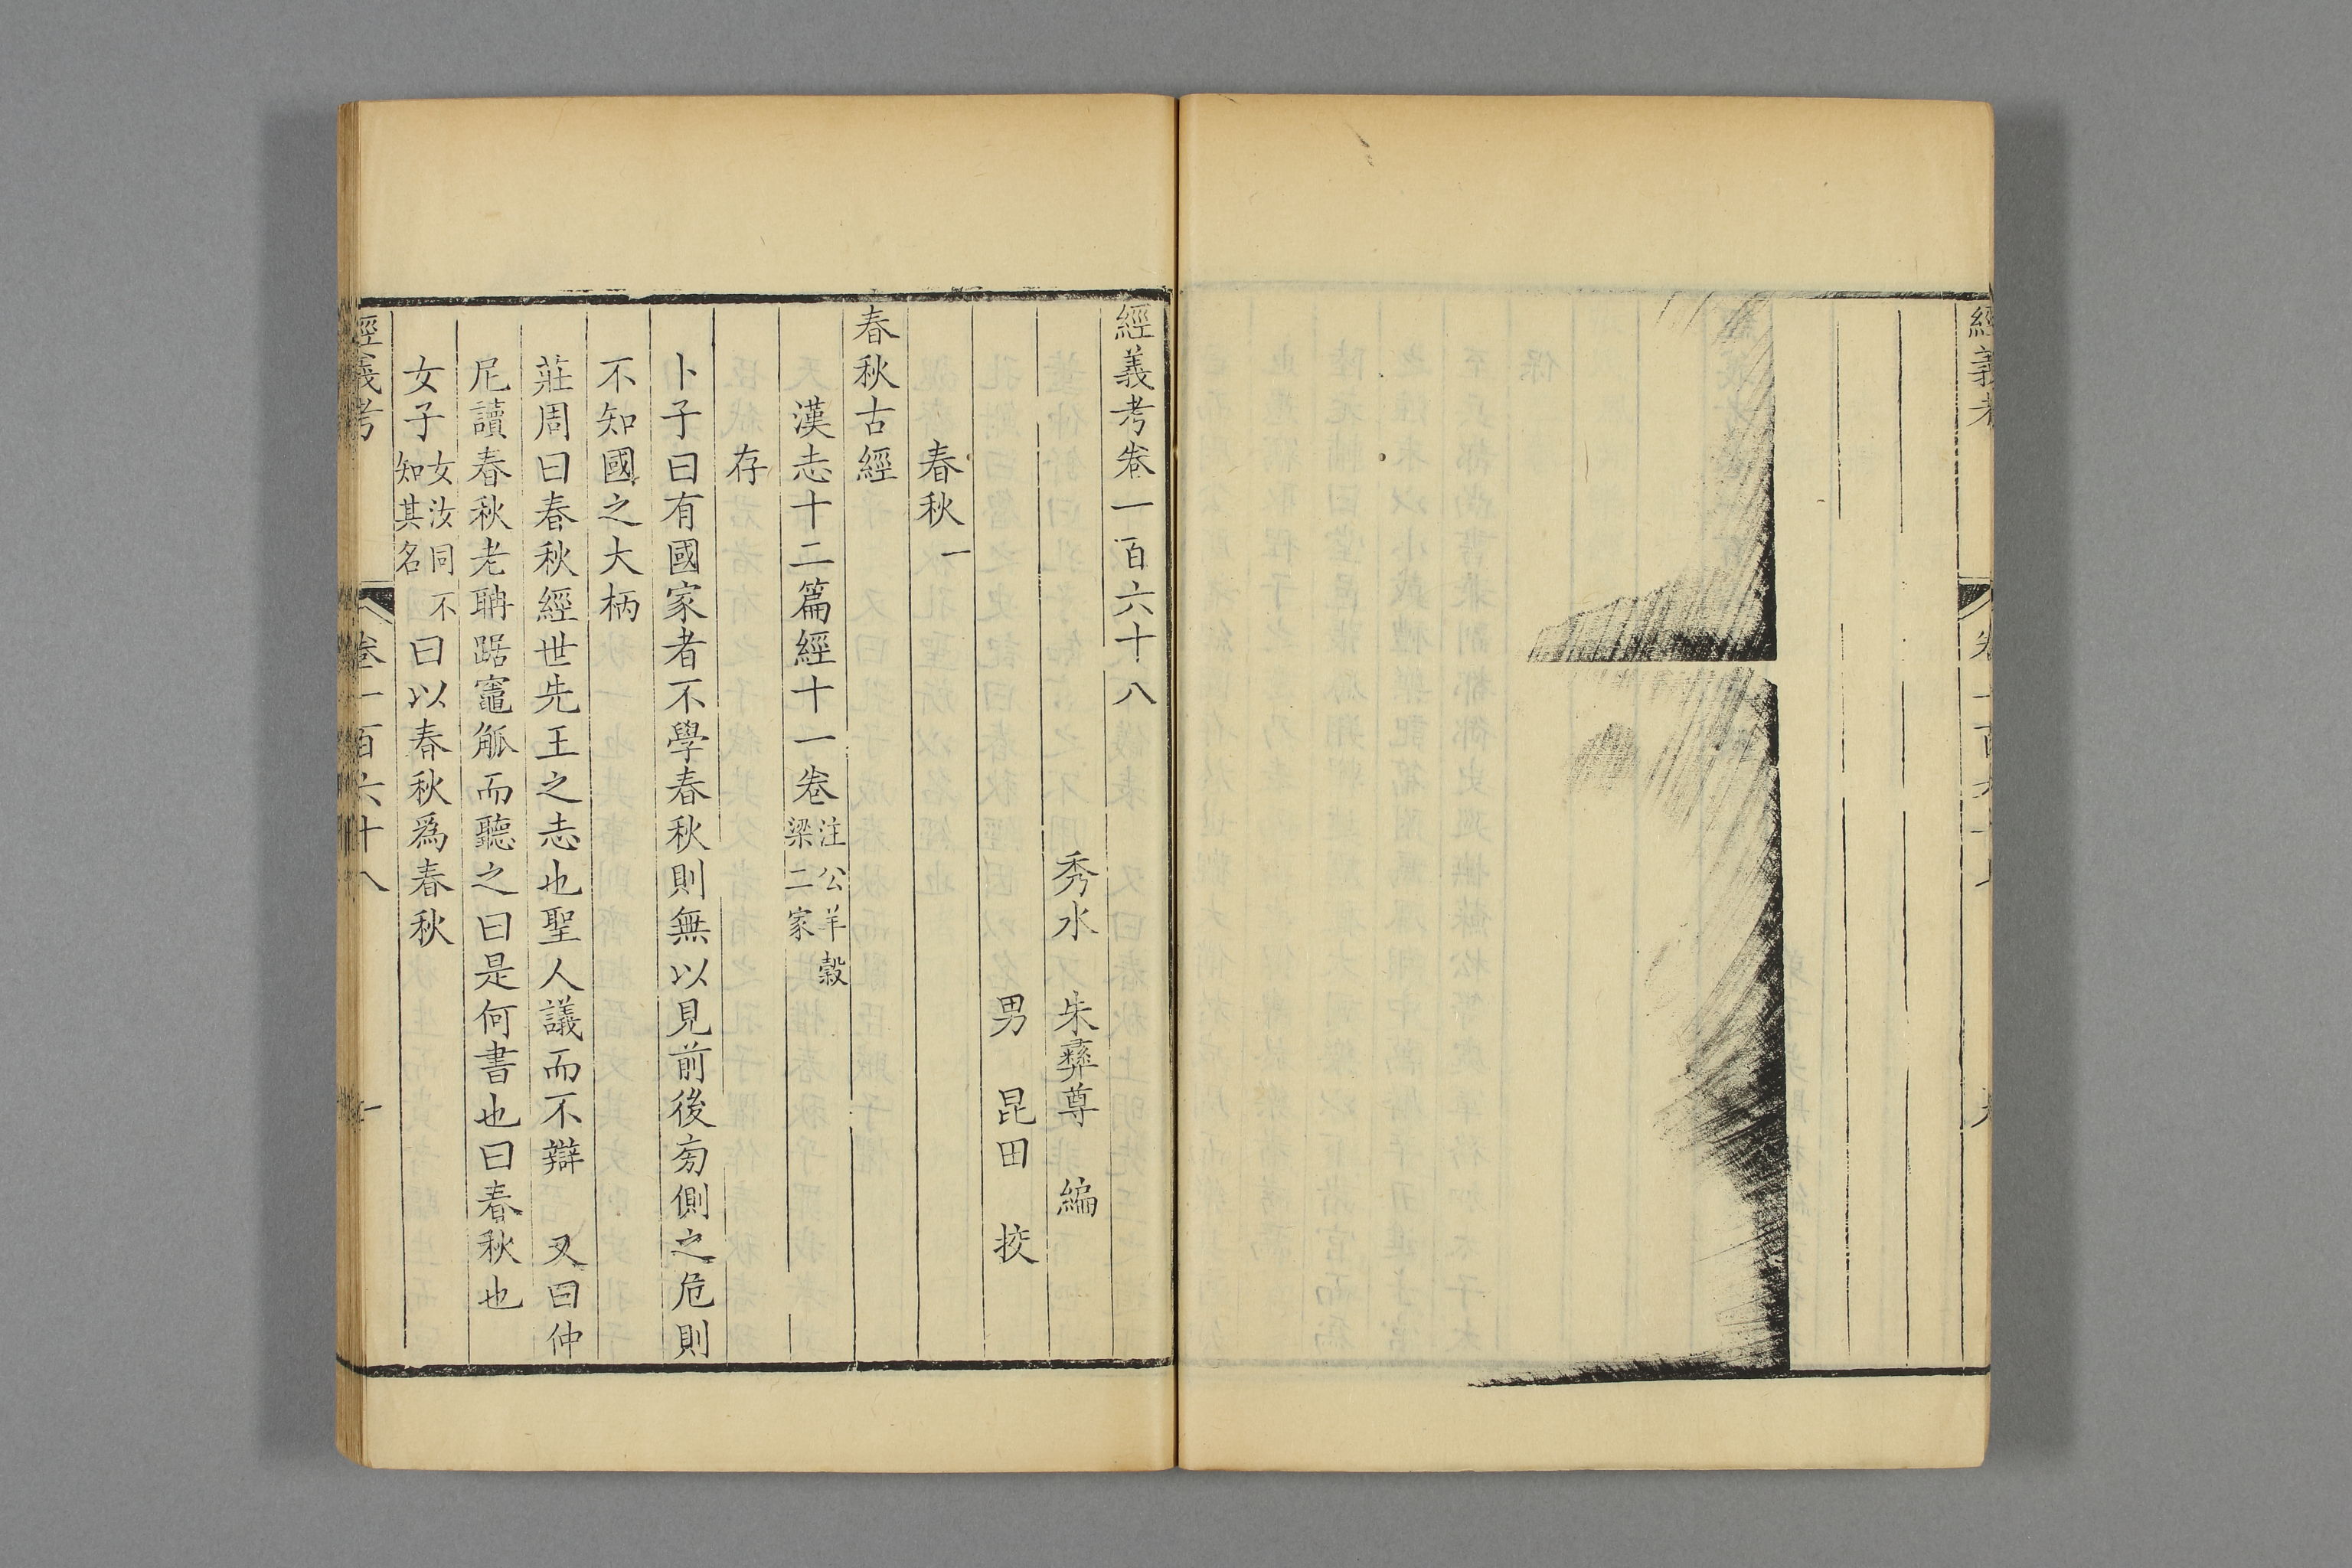 經義考
經義考卷一百六十八
秀水 朱彛尊 編
男 昆田 挍
春秋一
春秋古經
漢志十二篇經十一卷注公羊穀梁二家
存
卜子曰有國家者不學春秋則無以見前後㫄側之危則
不知國之大柄
莊周曰春秋經世先王之志也聖人議而不辯 又曰仲
尼讀春秋老聃踞竈觚而聽之曰是何書也曰春秋也
女子女汝同不知其名曰以春秋爲春秋
經義考 卷一百六十八 一